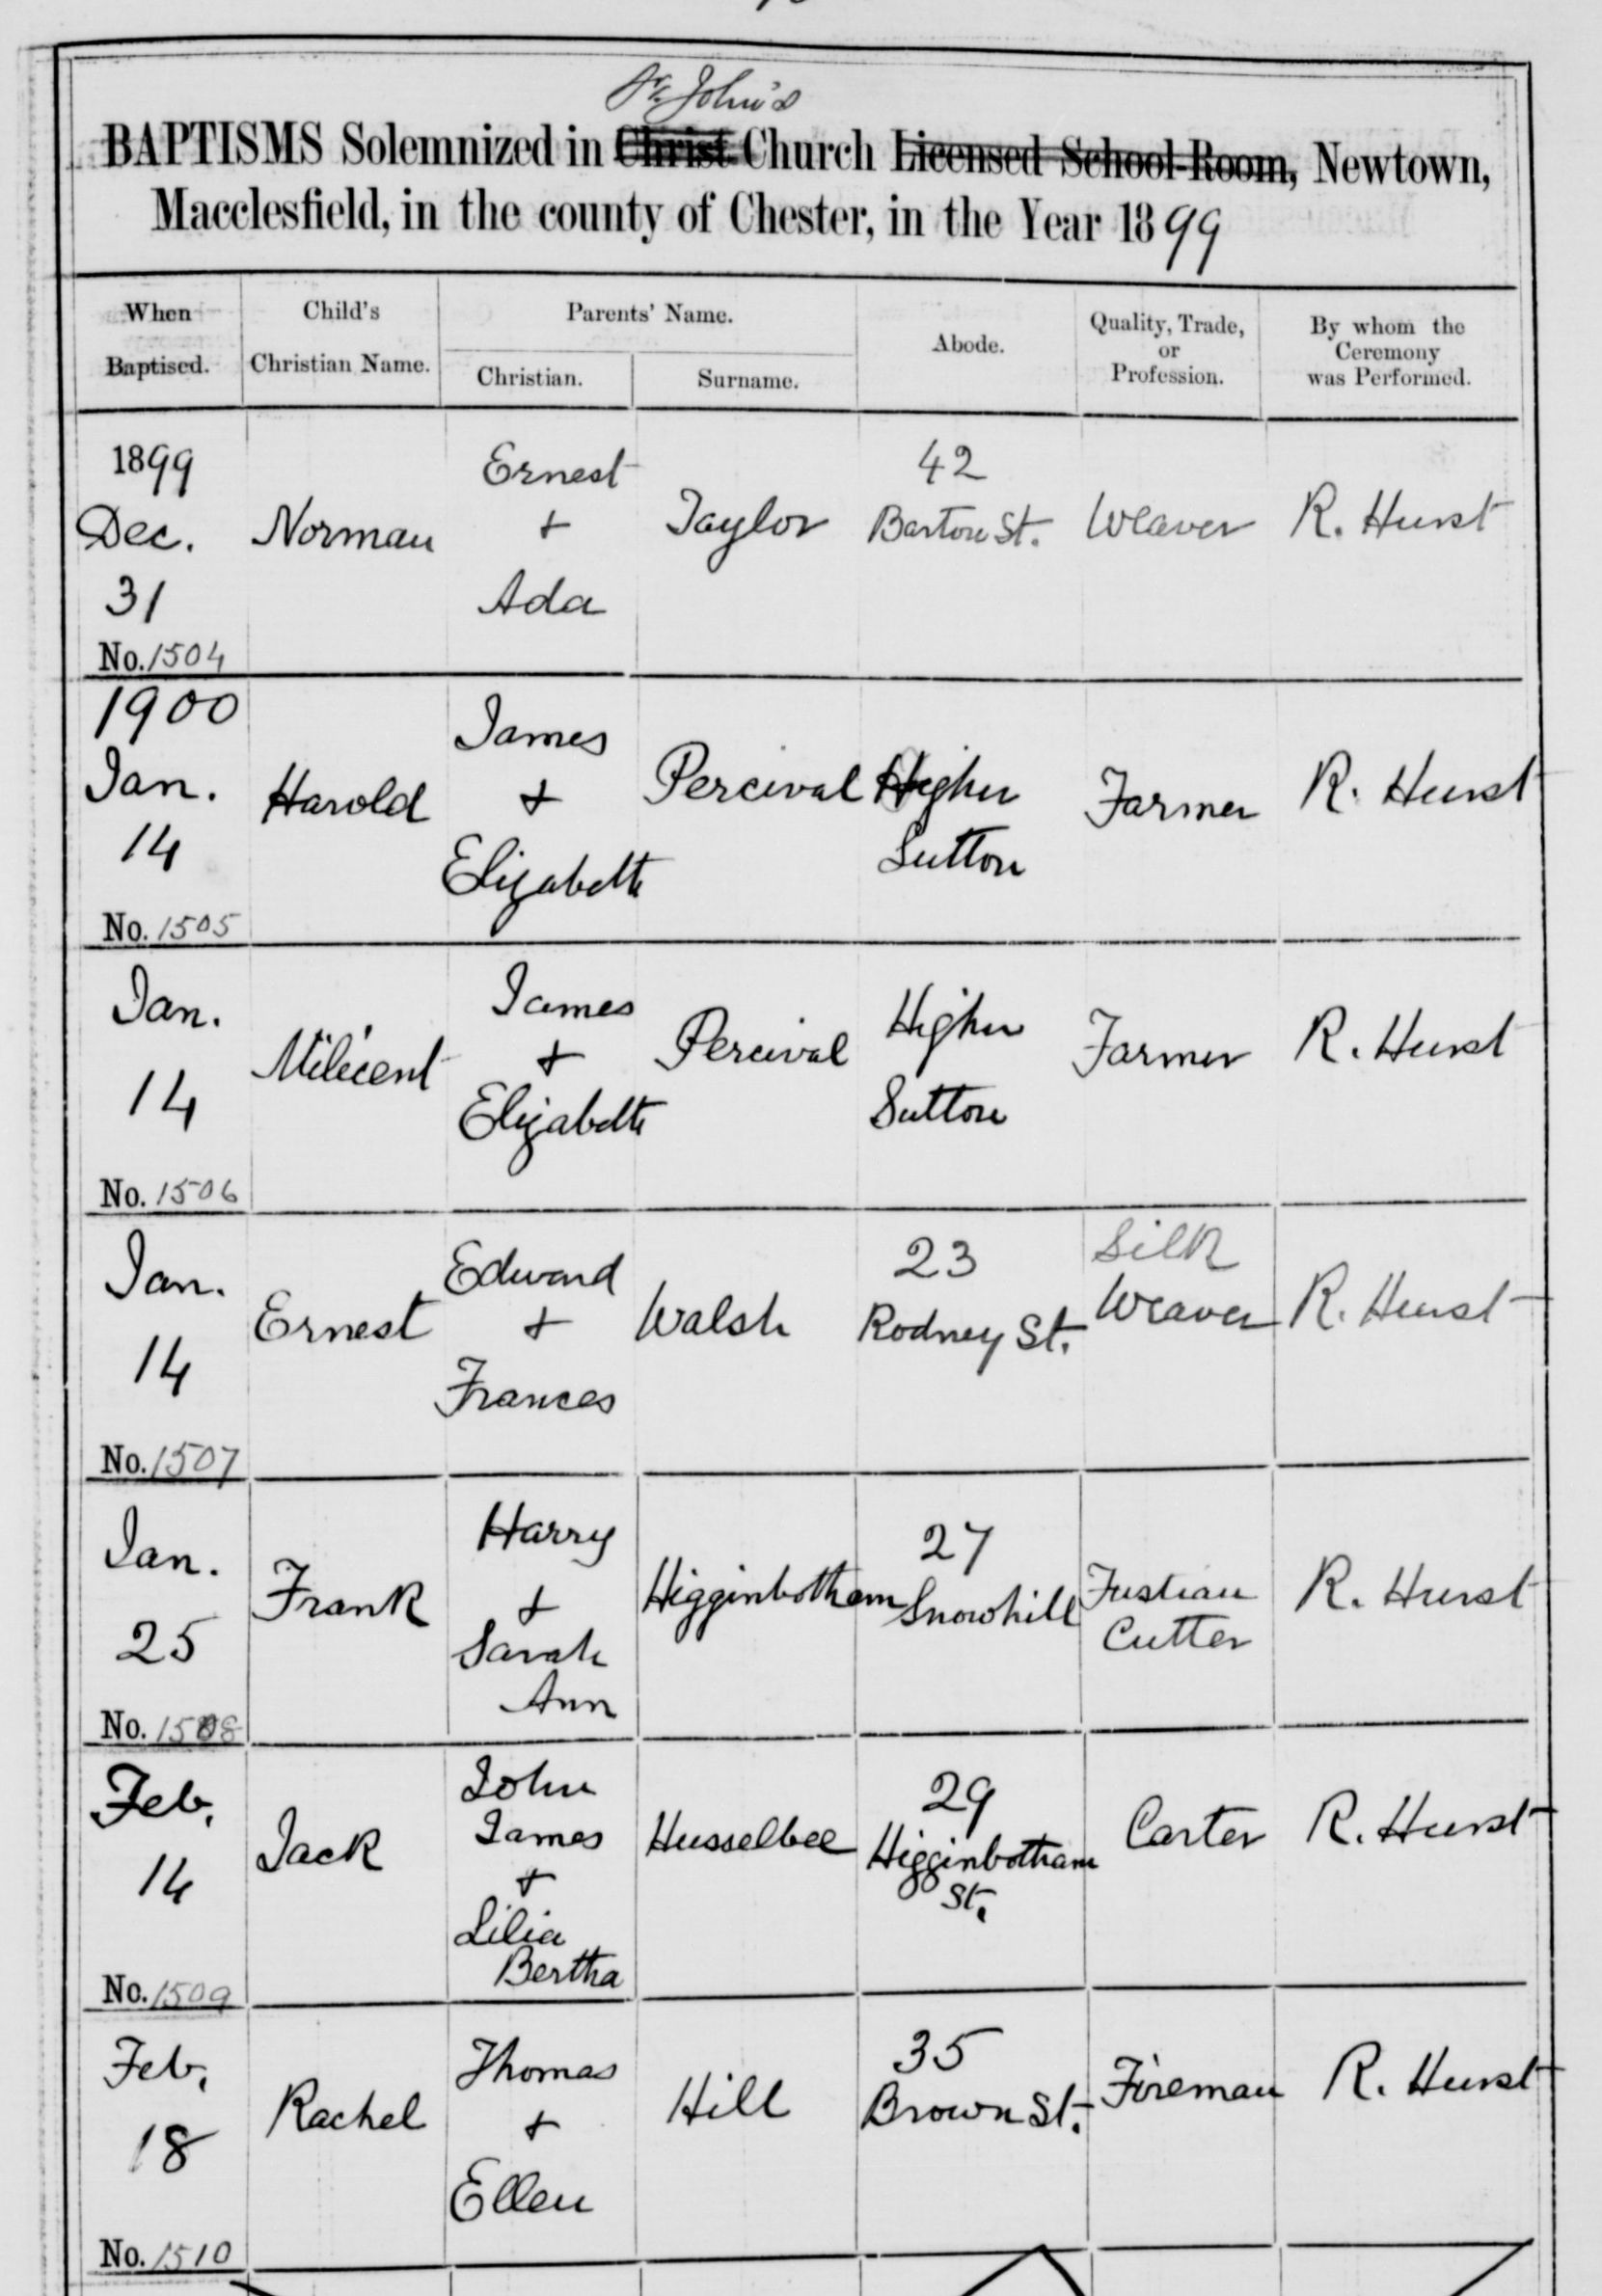 St. John's
BAPTISMS Solemnized in Christ Church Licensed School-Room, Newtown,
Macclesfield, in the county of Chester, in the Year 1899
When Baptised.
Child's Christian Name.
Parents' Name.
Christian.
Surname.
Abode.
Quality, Trade, or Profession.
By whom the Ceremony was Performed.
1899 Dec. 31
No. 1504
Norman
Ernest + Ada
Taylor
42 Barton St.
Weaver
R. Hurst
1900 Jan. 14
No. 1505
Harold
James + Elizabeth
Percival
Higher Sutton
Farmer
R. Hurst
Jan. 14
No. 1506
Milicent
James + Elizabeth
Percival
Higher Sutton
Farmer
R. Hurst
Jan. 14
No. 1507
Ernest
Edward + Frances
Walsh
23 Rodney St.
Silk Weaver
R. Hurst
Jan. 25
No. 1508
Frank
Harry + Sarah Ann
Higginbotham
27 Snowhill
Fustian Cutter
R. Hurst
Feb. 14
No. 1509
Jack
John James + Lilia Bertha
Husselbee
29 Higginbotham St.
Carter
R. Hurst
Feb. 18
No. 1510
Rachel
Thomas + Ellen
Hill
35 Brown St.
Fireman
R. Hurst